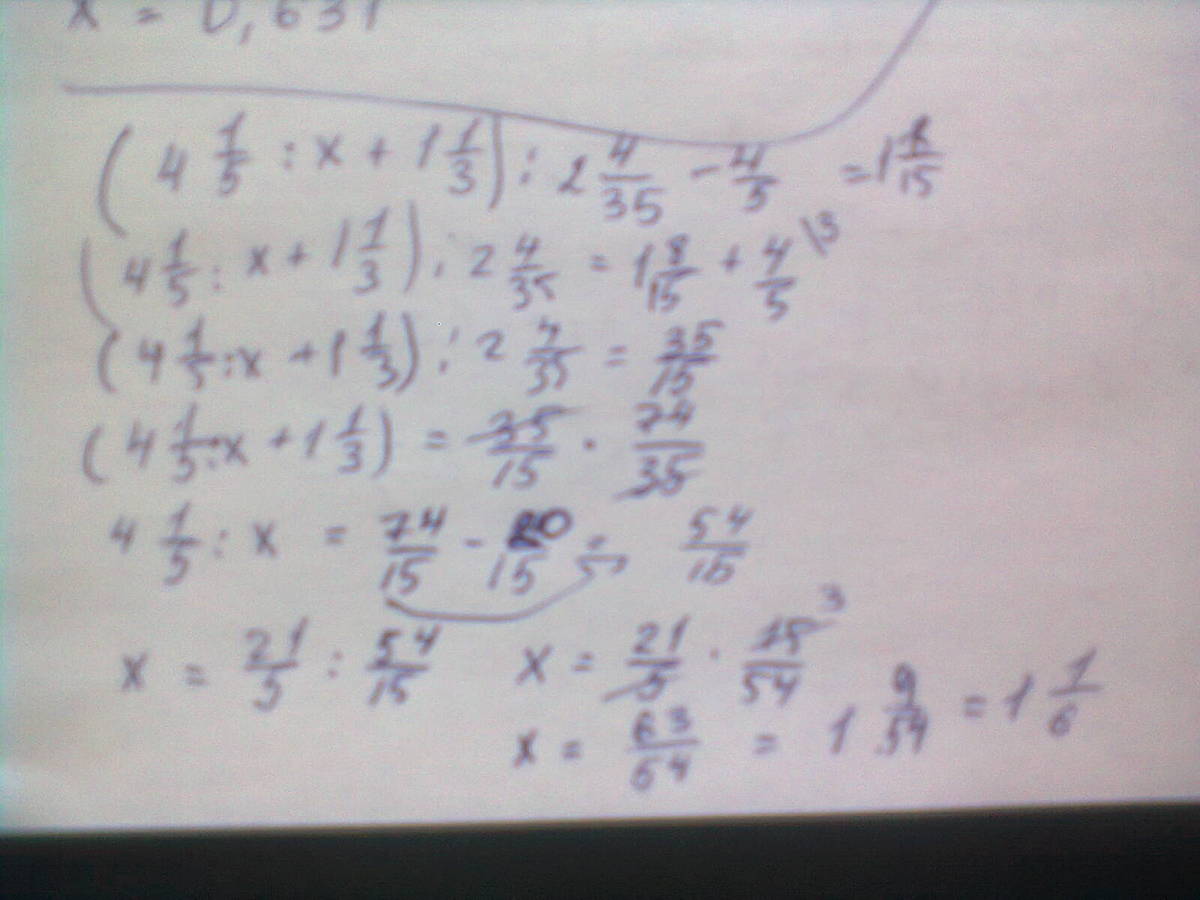 x = 0,631
(4 1/5 : x + 1 1/3) : 2 4/35 - 4/5 = 1 8/15
(4 1/5 : x + 1 1/3) : 2 4/35 = 1 8/15 + 4/5 \3
(4 1/5 : x + 1 1/3) : 2 4/35 = 35/15
(4 1/5 : x + 1 1/3) = 35/15 · 74/35
4 1/5 : x = 74/15 - 20/15 = 54/15
x = 21/5 : 54/15 x = 21/5 · 15/54 3
x = 63/54 = 1 9/54 = 1 1/6